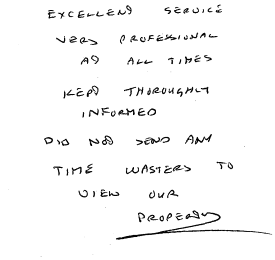 EXCELLENT SERVICE
VERY PROFESSIONAL
AT ALL TIMES
KEPT THOROUGHLY
INFORMED
DID NOT SEND ANY
TIME WASTERS TO
VIEW OUR
PROPERTY